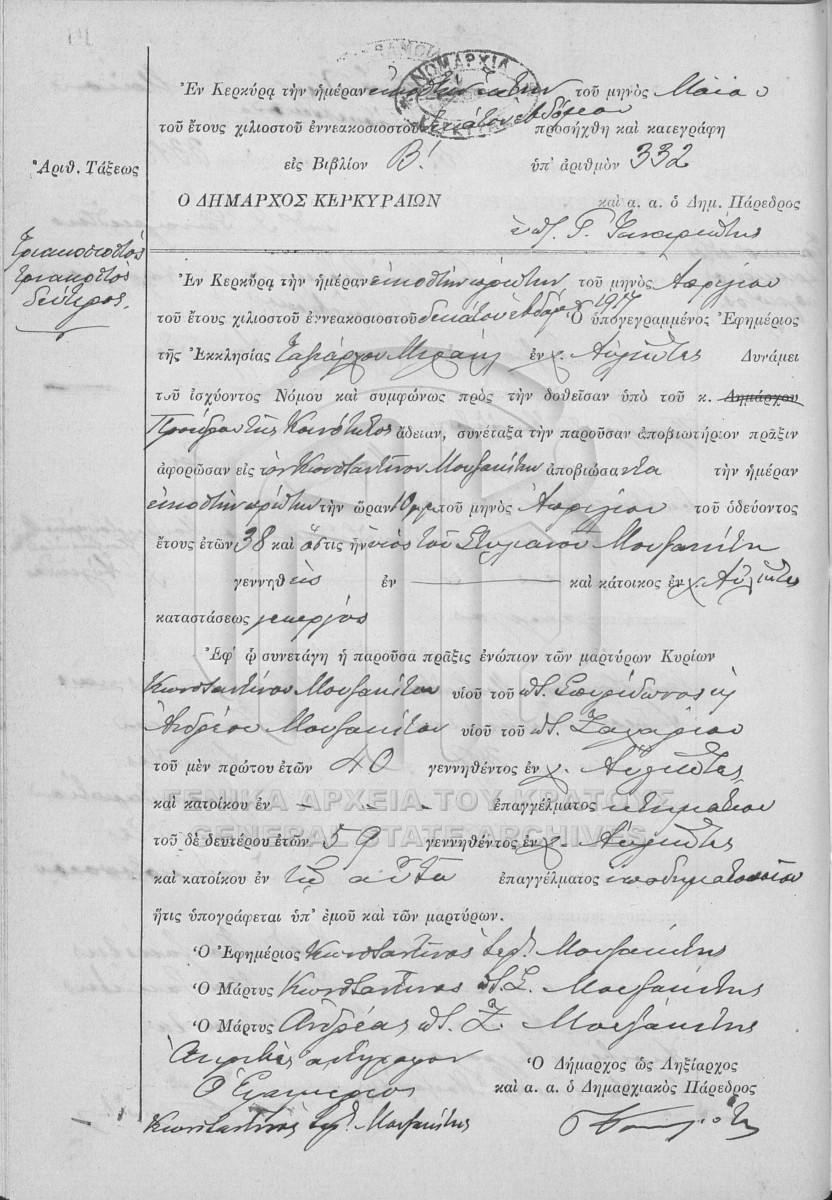 ΝΟΜΑΡΧΙΑ
ΚΕΡΚΥΡΑΣ
Ἐν Κερκύρᾳ τὴν ἡμέραν εἰκοστὴν ἕκτην τοῦ μηνὸς Μαΐου
τοῦ ἔτους χιλιοστοῦ ἐννεακοσιοστοῦ δεκάτου ἑβδόμου προσήχθη καὶ κατεγράφη
εἰς Βιβλίον Β! ὑπ' ἀριθμὸν 332
Ἀριθ. Τάξεως
Ο ΔΗΜΑΡΧΟΣ ΚΕΡΚΥΡΑΙΩΝ καὶ α. α. ὁ Δημ. Πάρεδρος
Γ.
Τριακοστὸς
τριακοστὸς
δεύτερος.
Ἐν Κερκύρᾳ τὴν ἡμέραν εἰκοστὴν πρώτην τοῦ μηνὸς Ἀπριλίου
τοῦ ἔτους χιλιοστοῦ ἐννεακοσιοστοῦ δεκάτου ἑβδόμου 1917 Ὁ ὑπογεγραμμένος Ἐφημέριος
τῆς Ἐκκλησίας Ταξιάρχου Μιχαὴλ ἐν χ. Αὐλιῶτες Δυνάμει
τοῦ ἰσχύοντος Νόμου καὶ συμφώνως πρὸς τὴν δοθεῖσαν ὑπὸ τοῦ κ. Δημάρχου
Προέδρου τῆς Κοινότητος ἄδειαν, συνέταξα τὴν παροῦσαν ἀποβιωτήριον πρᾶξιν
ἀφορῶσαν εἰς τὸν Κωνσταντῖνον Μουζακίτην ἀποβιώσαντα τὴν ἡμέραν
εἰκοστὴν πρώτην τὴν ὥραν 10 τοῦ μηνὸς Ἀπριλίου τοῦ ὁδεύοντος
ἔτους ἐτῶν 38 καὶ ὅστις ἦν υἱὸς τοῦ Στυλιανοῦ Μουζακίτη
γεννηθεὶς ἐν — καὶ κάτοικος ἐν χ. Αὐλιῶτες
καταστάσεως γεωργὸς
Ἐφ' ᾧ συνετάγη ἡ παροῦσα πρᾶξις ἐνώπιον τῶν μαρτύρων Κυρίων
Κωνσταντίνου Μουζακίτου υἱοῦ τοῦ ποτ. Σπυρίδωνος ἢ
Ἀνδρέου Μουζακίτου υἱοῦ τοῦ ποτ. Ζαχαρίου
τοῦ μὲν πρώτου ἐτῶν 40 γεννηθέντος ἐν χ. Αὐλιῶτες
καὶ κατοίκου ἐν - - - ἐπαγγέλματος κτηματίου
τοῦ δὲ δευτέρου ἐτῶν 59 γεννηθέντος ἐν χ. Αὐλιῶτες
καὶ κατοίκου ἐν τῷ αὐτῷ ἐπαγγέλματος ὑποδηματοποιοῦ
ἥτις ὑπογράφεται ὑπ' ἐμοῦ καὶ τῶν μαρτύρων.
Ὁ Ἐφημέριος Κωνσταντῖνος ἱερ. Μουζακίτης
Ὁ Μάρτυς Κωνσταντῖνος ποτ. Σ. Μουζακίτης
Ὁ Μάρτυς Ἀνδρέας ποτ. Ζ. Μουζακίτης
Ἀκριβὲς ἀντίγραφον
Ὁ Ἐφημέριος
Κωνσταντῖνος ἱερ. Μουζακίτης
Ὁ Δήμαρχος ὡς Ληξίαρχος
καὶ α. α. ὁ Δημαρχιακὸς Πάρεδρος
ΓΕΝΙΚΑ ΑΡΧΕΙΑ ΤΟΥ ΚΡΑΤΟΥΣ
GENERAL STATE ARCHIVES